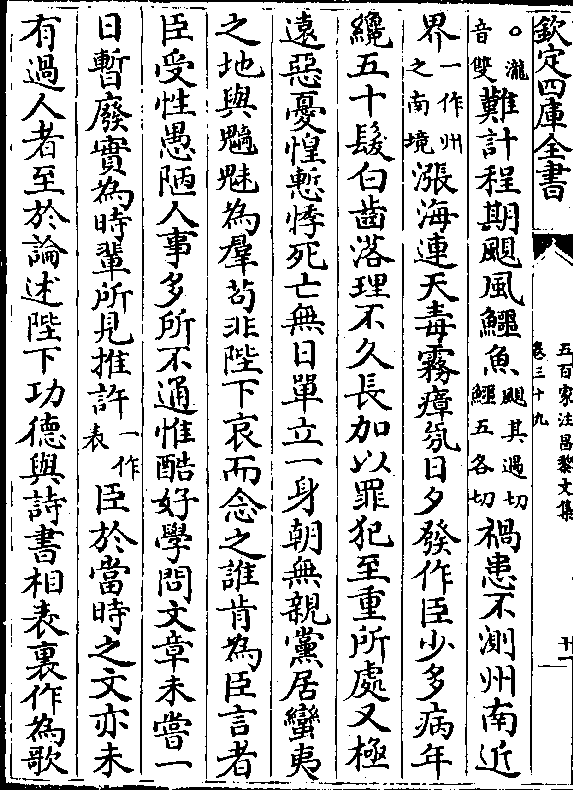 欽定四庫全書
五百家注昌黎文集
卷三十九
十一
○瀧音雙難計程期颶風鱷魚颶其遇切鱷五各切禍患不測州南近
界一作州之南境漲海連天毒霧瘴氛日夕發作臣少多病年
纔五十髮白齒落理不久長加以罪犯至重所處又極
遠惡憂惶慙悸死亡無日單立一身朝無親黨居蠻夷
之地與魑魅為羣苟非陛下哀而念之誰肯為臣言者
臣受性愚陋人事多所不通惟酷好學問文章未嘗一
日暫廢實為時輩所見推許一作表臣於當時之文亦未
有過人者至於論述陛下功德與詩書相表裏作為歌